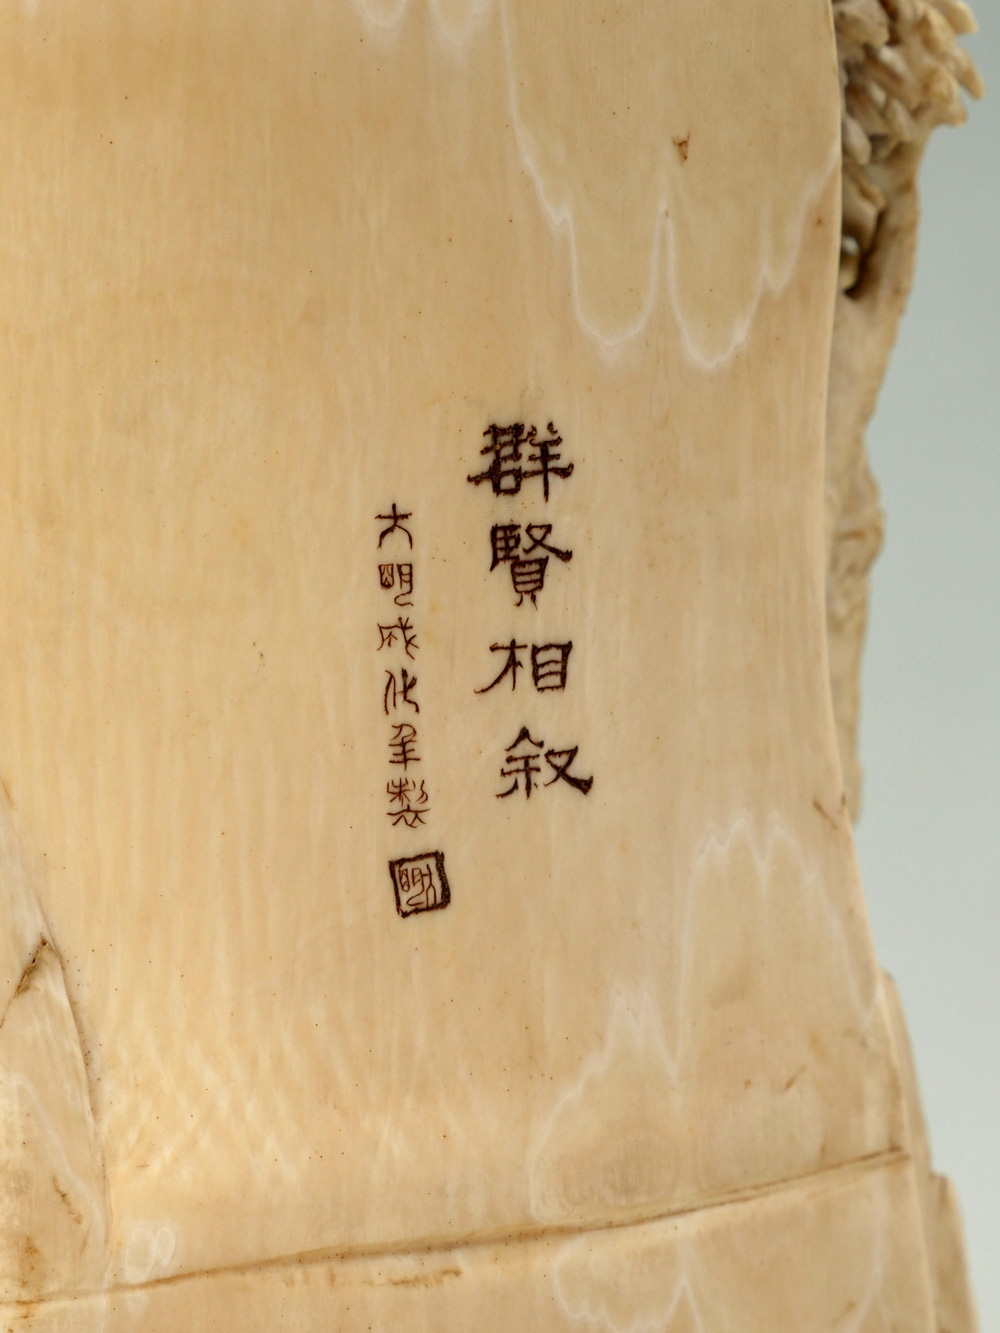 群賢相叙
大明成化年製